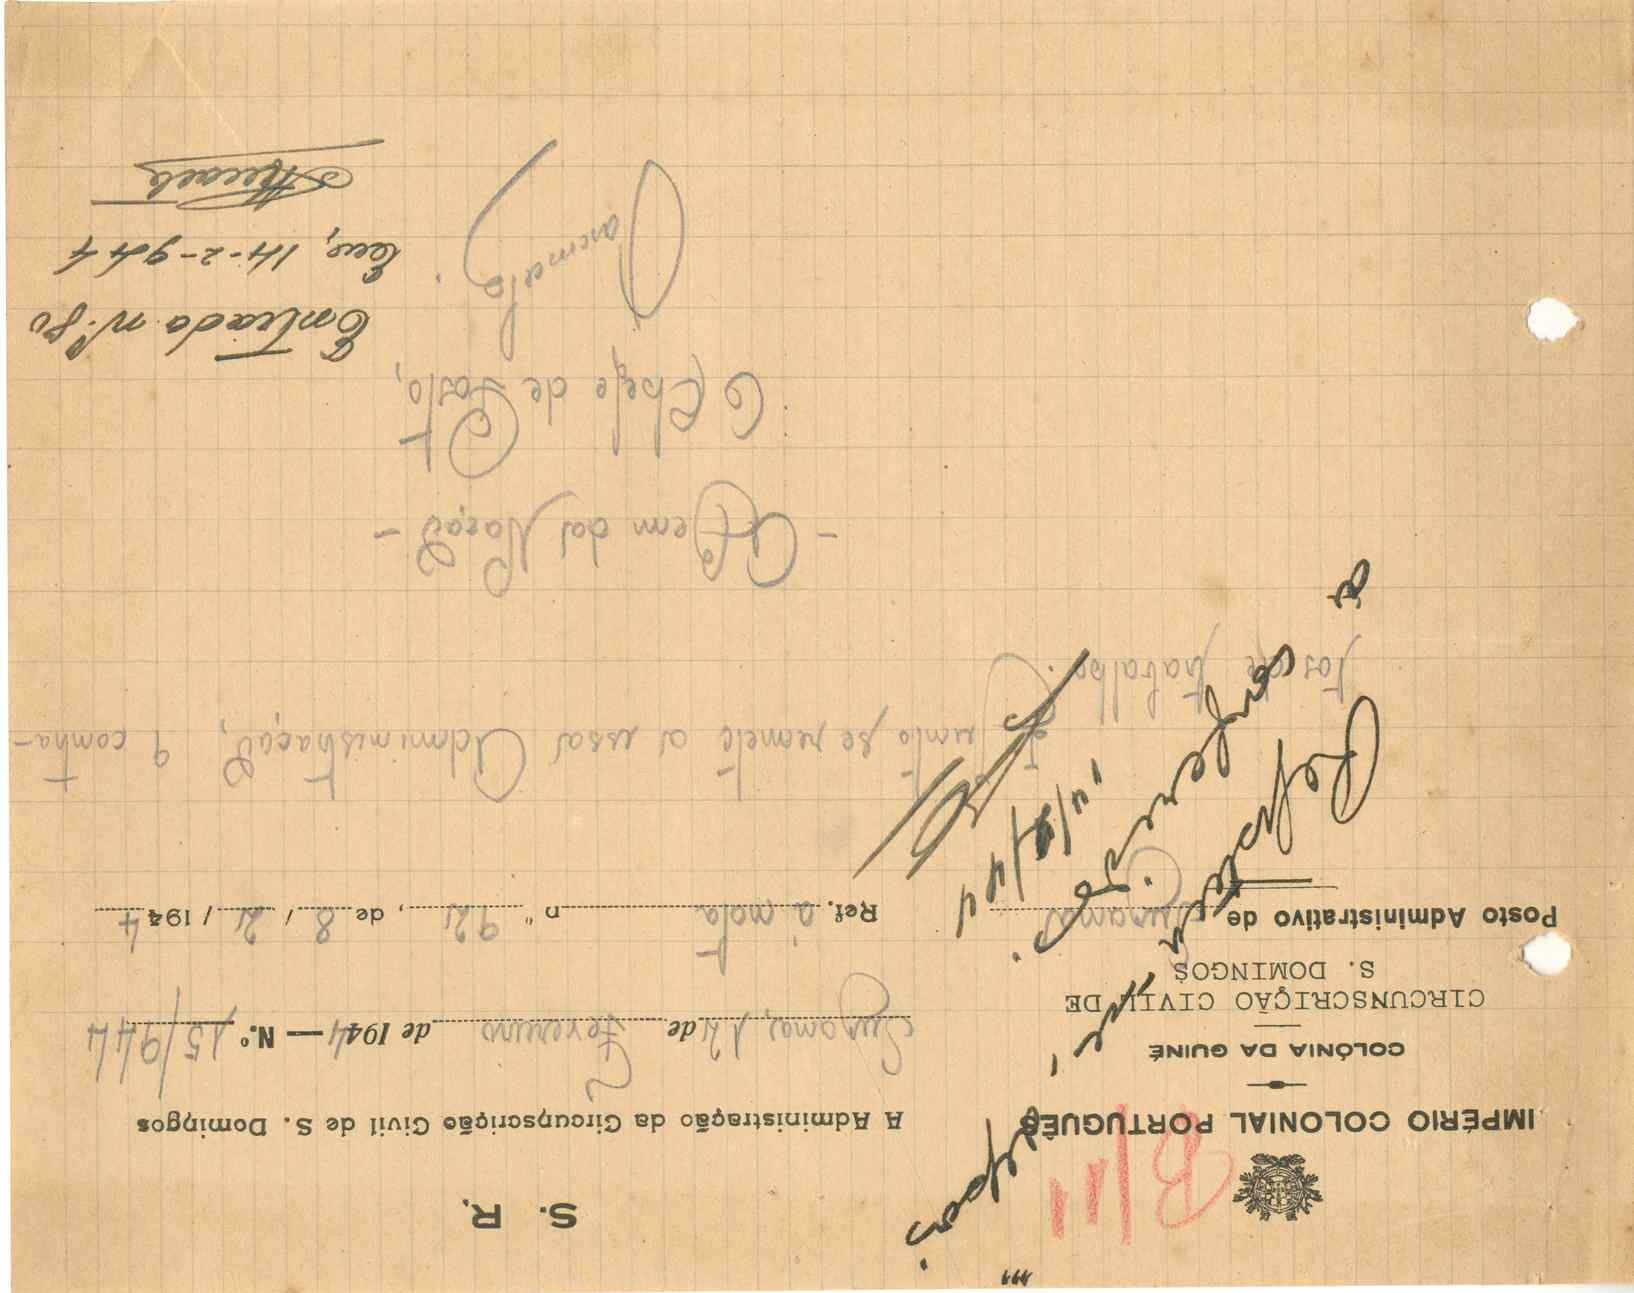 S. R.
B/11
IMPÉRIO COLONIAL PORTUGUÊS
COLÓNIA DA GUINÉ
CIRCUNSCRIÇÃO CIVIL DE
S. DOMINGOS
Posto Administrativo de Suzana
A Administração da Circunscrição Civil de S. Domingos
Suzana, 12 de Fevereiro de 1944 — N.º 15/944
Ref. a nota nº 92, de 8 / 2 / 1944
14/2/44
Junto se remete a essa Administração, 9 contra-
tos de trabalho.
- A Bem da Nação -
O Chefe de Posto,
Entrada nº 80
Em, 14-2-944